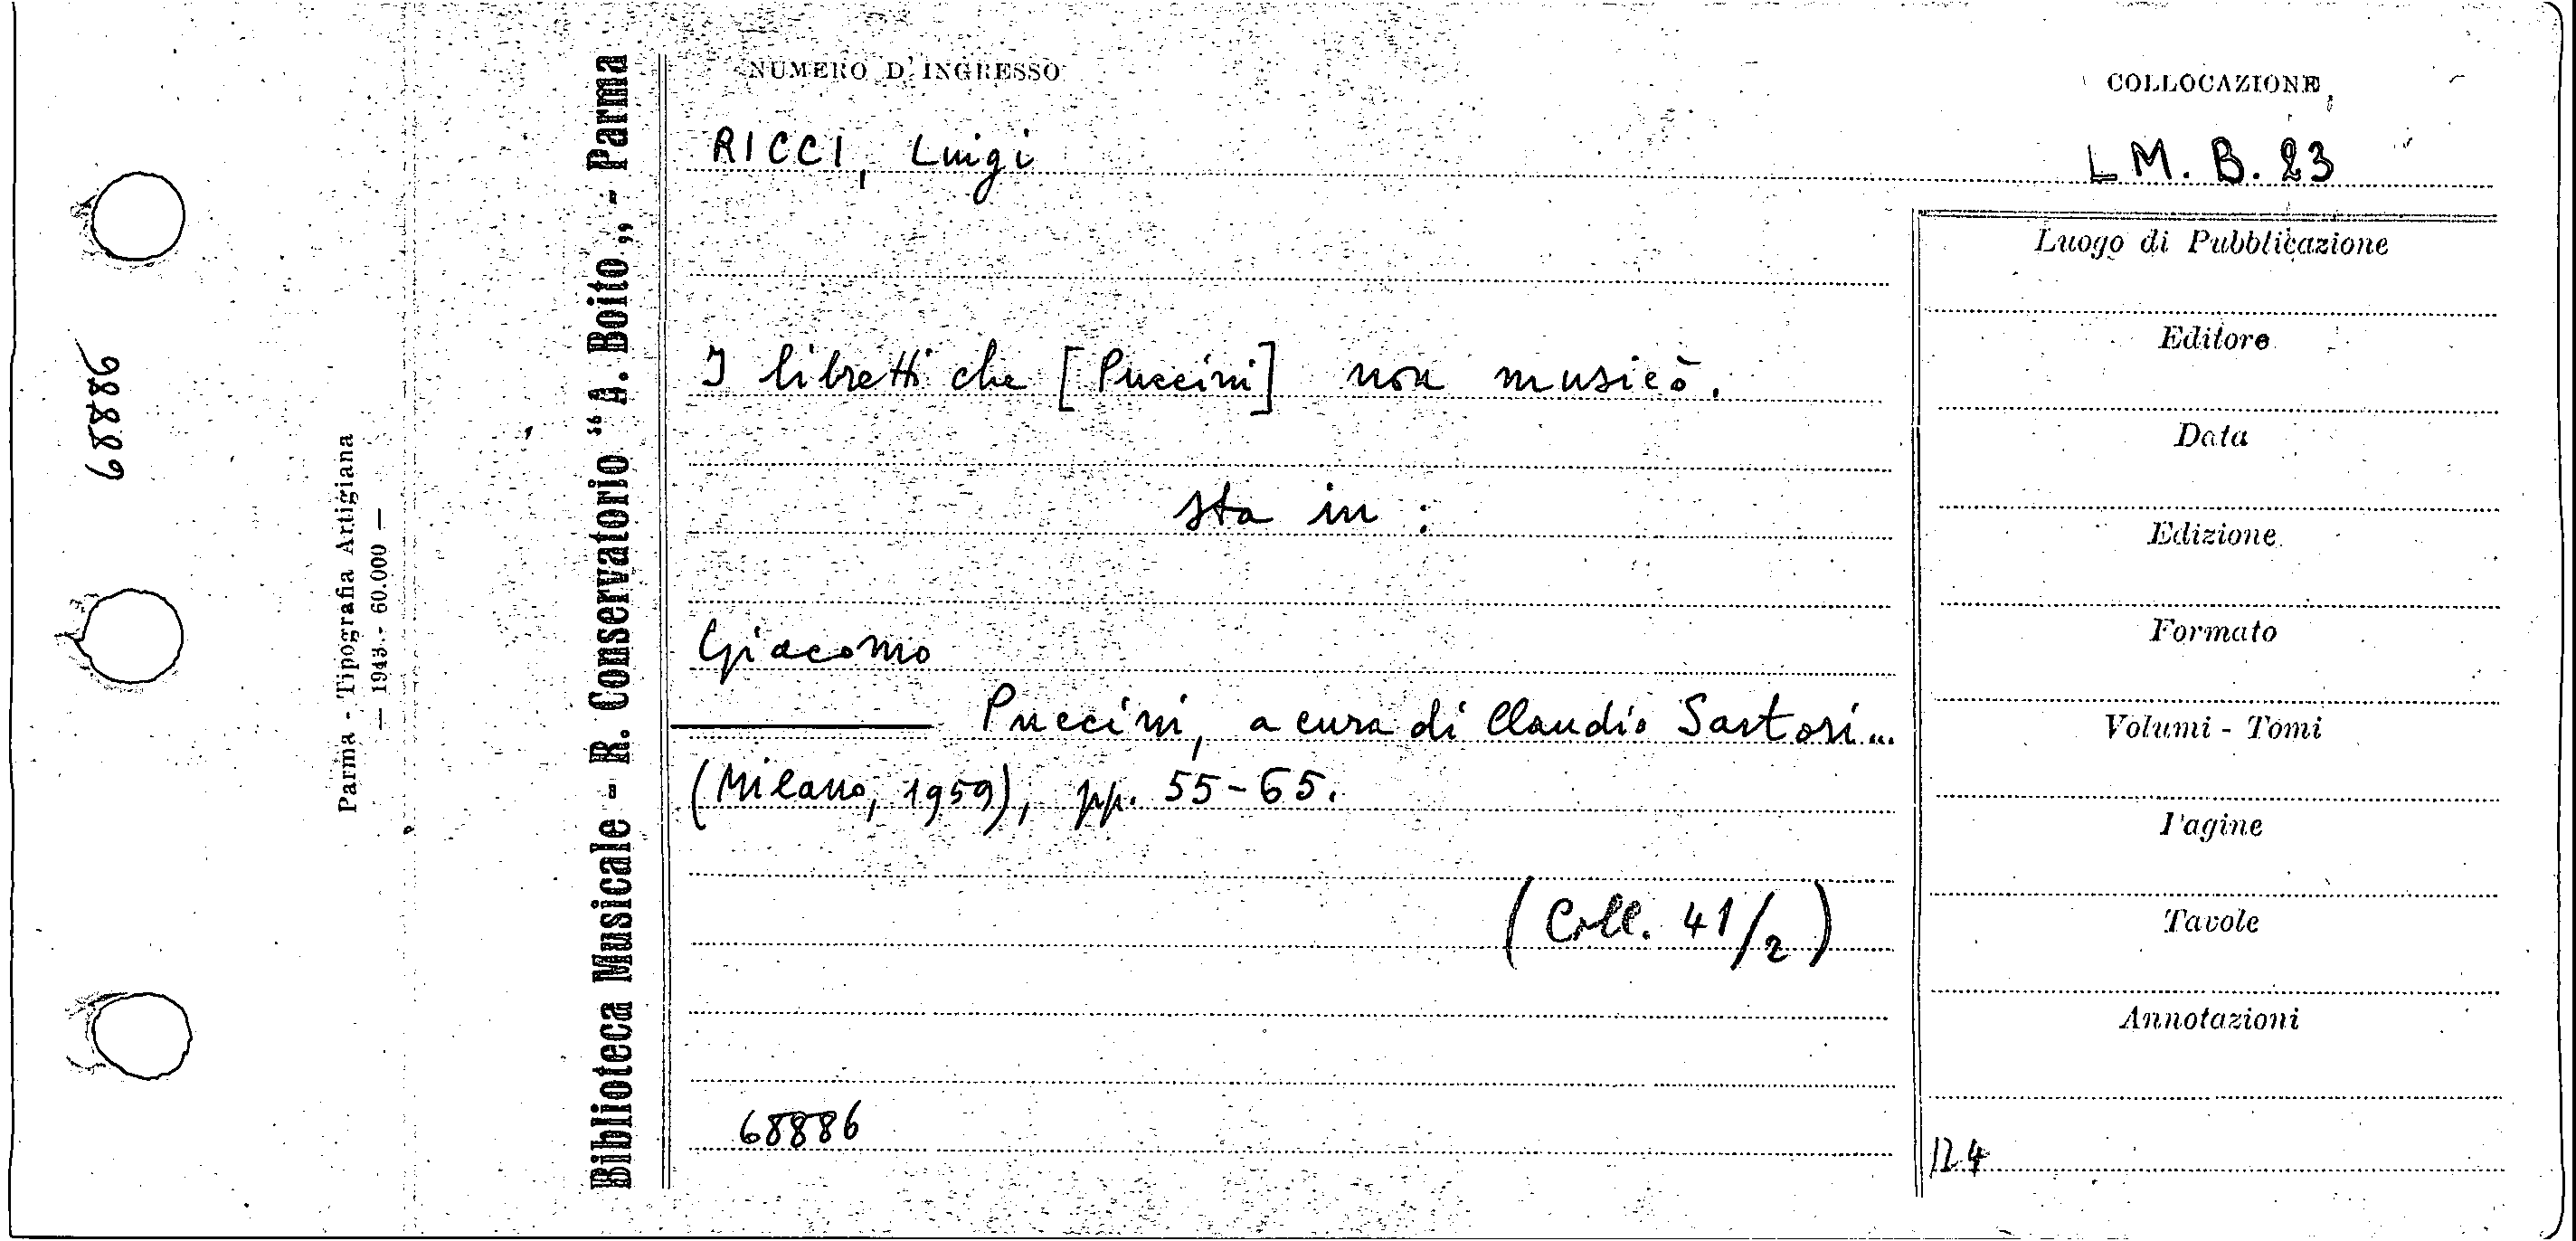 68886
Parma - Tipografia Artigiana
— 1943 - 60.000 —
Biblioteca Musicale - R. Conservatorio “A. Boito„ - Parma
NUMERO D'INGRESSO
COLLOCAZIONE
RICCI, Luigi
LM. B. 23
I libretti che [Puccini] non musicò.
sta in :
Giacomo
Puccini, a cura di Claudio Sartori...
(Milano, 1959), pp. 55-65.
(Coll. 41/2)
68886
Luogo di Pubblicazione
Editore
Data
Edizione
Formato
Volumi - Tomi
Pagine
Tavole
Annotazioni
124